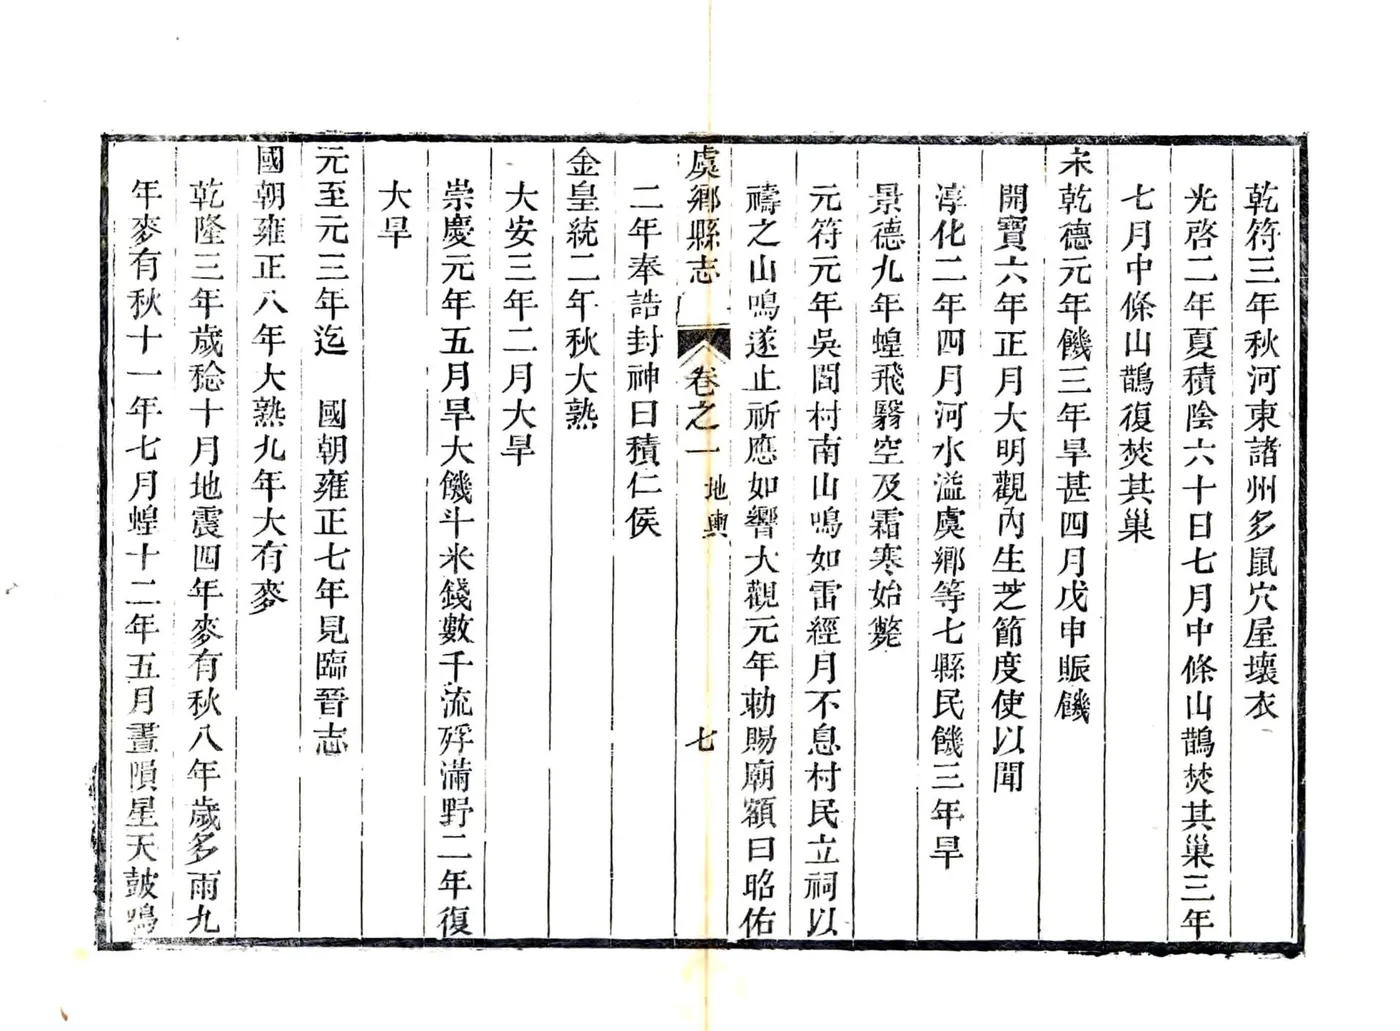 乾符三年秋河東諸州多鼠穴屋壞衣
光啓二年夏積陰六十日七月中條山鵲焚其巢三年
七月中條山鵲復焚其巢
宋乾德元年饑三年旱甚四月戊申賑饑
開寶六年正月大明觀內生芝節度使以聞
淳化二年四月河水溢虞鄉等七縣民饑三年旱
景德九年蝗飛翳空及霜寒始斃
元符元年吳閻村南山鳴如雷經月不息村民立祠以
禱之山鳴遂止祈應如響大觀元年勅賜廟額曰昭佑
虞鄉縣志
卷之一
地輿
七
二年奉誥封神曰積仁侯
金皇統二年秋大熟
大安三年二月大旱
崇慶元年五月旱大饑斗米錢數千流殍滿野二年復
大旱
元至元三年迄 國朝雍正七年見臨晉志
國朝雍正八年大熟九年大有麥
乾隆三年歲稔十月地震四年麥有秋八年歲多雨九
年麥有秋十一年七月蝗十二年五月晝隕星天鼓鳴